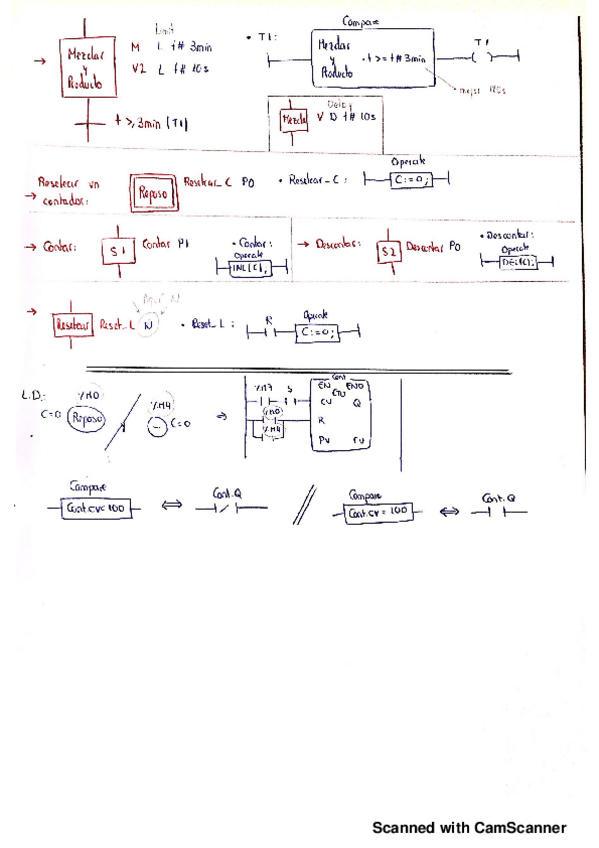 Limit
Mezclar
y
Producto
M L t# 3min
V2 L t# 10s
t >, 3min (T1)
• T1:
Compare
Mezclar
y
Producto
• t >= t# 3min
T1
mejor 180s
Delay
Mezcla
V D t# 10s
Resetear un
contador:
Reposo
Resetear_C P0
• Resetear_C:
Operate
C:=0;
→ Contar:
S1
Contar P1
• Contar:
Operate
INC(C);
→ Descontar:
S2
Descontar P0
• Descontar:
Operate
DEC(C);
Aquí N
Resetear
Reset_L N
• Reset_L:
R
Operate
C:=0;
L.D.:
%M0
C=0
Reposo
%M4
C=0
⇒
%M7 S
%M0
%M4
Cont
EN ENO
CTU
CU Q
R
PV CV
Compare
Cont.CV<100
⇔
Cont.Q
//
Compare
Cont.CV = 100
⇔
Cont.Q
Scanned with CamScanner